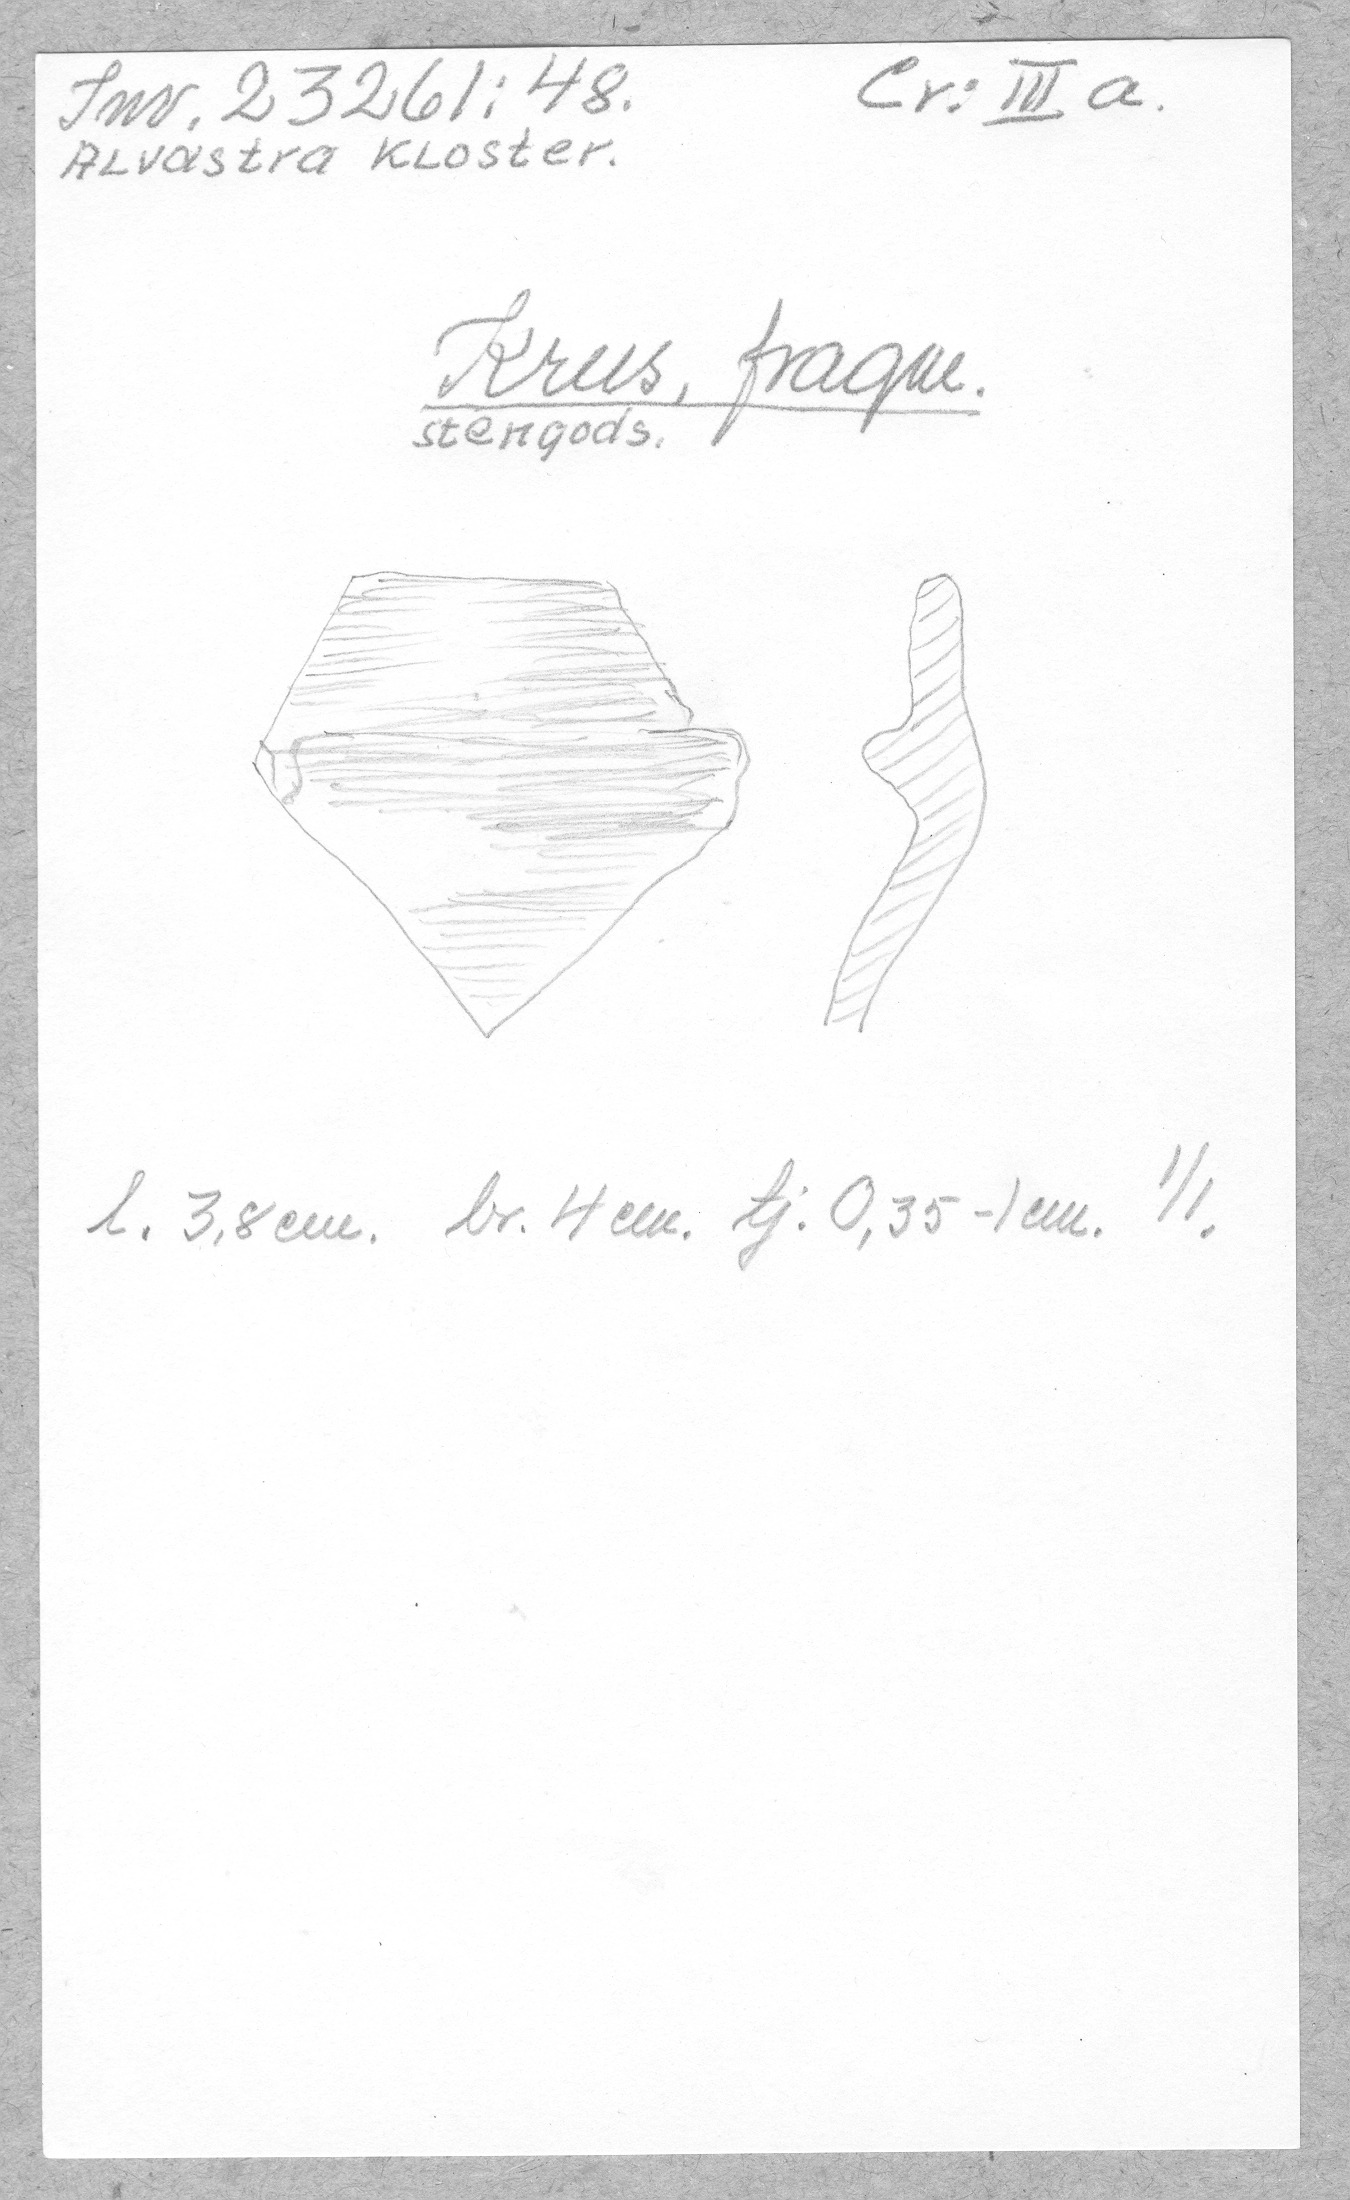 Inv. 23261:48. Cr: III a.
Alvastra Kloster.
Krus, fragm.
stengods.
l. 3,8 cm. br. 4 cm. tj: 0,35-1 cm. 1/1.